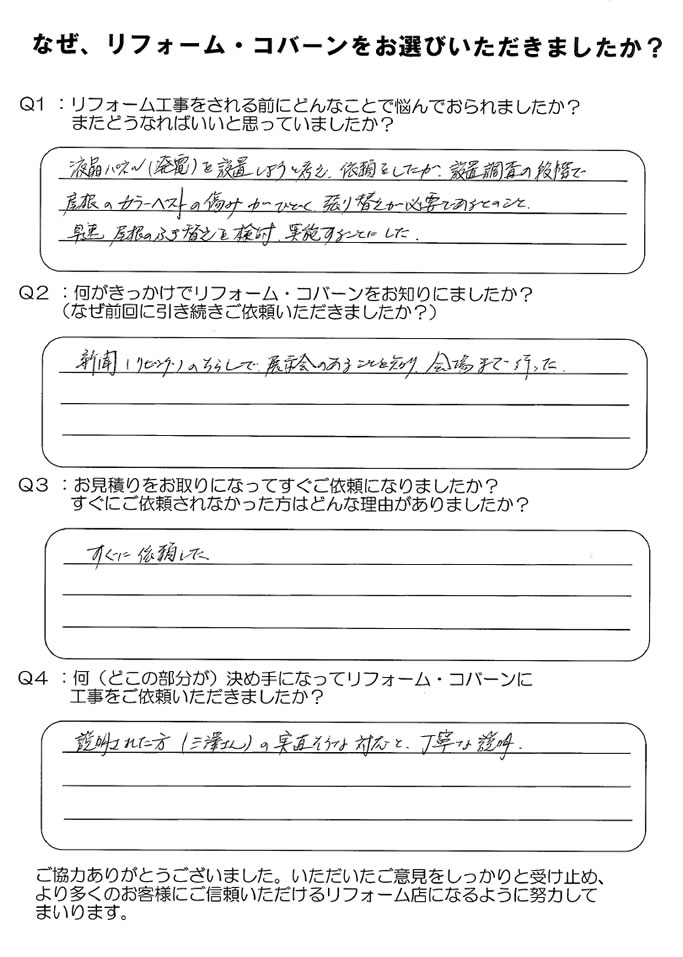 なぜ、リフォーム・コバーンをお選びいただきましたか？
Q1：リフォーム工事をされる前にどんなことで悩んでおられましたか？
またどうなればいいと思っていましたか？
液晶パネル(発電)を設置しようと考え、依頼をしたが、設置調査の段階で
屋根のカラーベストの傷みがひどく、張り替えが必要であるとのこと、
早速、屋根のふき替えを検討、実施することにした。
Q2：何がきっかけでリフォーム・コバーンをお知りにましたか？
（なぜ前回に引き続きご依頼いただきましたか？）
新聞(リビング)のちらしで、展示会のあることを知り、会場まで行った。
Q3：お見積りをお取りになってすぐご依頼になりましたか？
すぐにご依頼されなかった方はどんな理由がありましたか？
すぐに依頼した
Q4：何（どこの部分が）決め手になってリフォーム・コバーンに
工事をご依頼いただきましたか？
説明された方(三澤さん)の実直そうな対応と、丁寧な説明。
ご協力ありがとうございました。いただいたご意見をしっかりと受け止め、
より多くのお客様にご信頼いただけるリフォーム店になるように努力して
まいります。